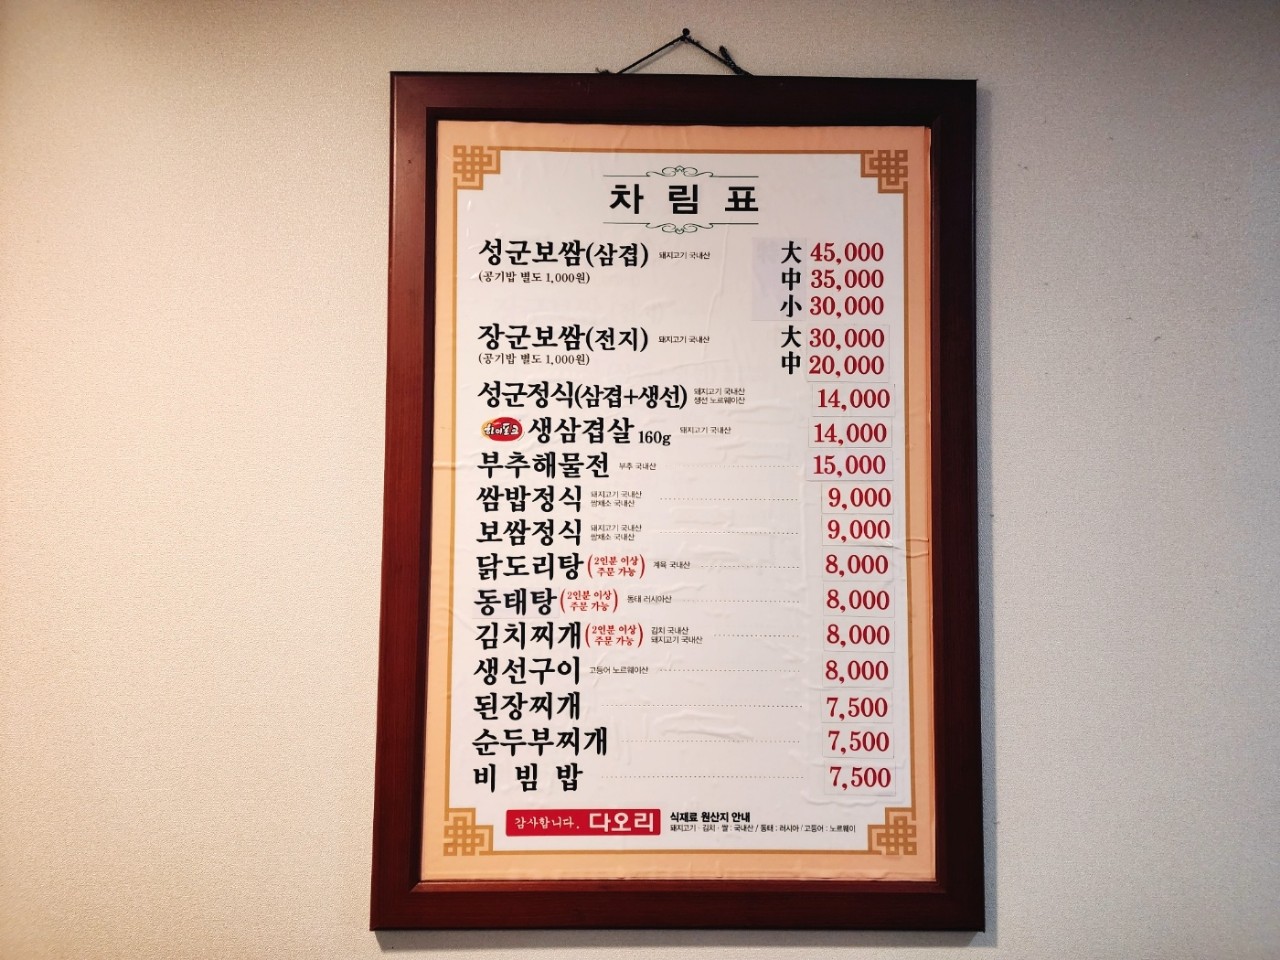 차림표
성군보쌈(삼겹) 돼지고기 국내산 大 45,000
(공기밥 별도 1,000원) 中 35,000
小 30,000
장군보쌈(전지) 돼지고기 국내산 大 30,000
(공기밥 별도 1,000원) 中 20,000
성군정식(삼겹+생선) 돼지고기 국내산 14,000
생선 노르웨이산
하이포크 생삼겹살 160g 돼지고기 국내산 14,000
부추해물전 부추 국내산 15,000
쌈밥정식 돼지고기 국내산 9,000
쌈채소 국내산
보쌈정식 돼지고기 국내산 9,000
쌈채소 국내산
닭도리탕 (2인분 이상 주문 가능) 계육 국내산 8,000
동태탕 (2인분 이상 주문 가능) 동태 러시아산 8,000
김치찌개 (2인분 이상 주문 가능) 김치 국내산 8,000
돼지고기 국내산
생선구이 고등어 노르웨이산 8,000
된장찌개 7,500
순두부찌개 7,500
비빔밥 7,500
감사합니다. 다오리 식재료 원산지 안내
돼지고기 · 김치 · 쌀 : 국내산 / 동태 : 러시아 / 고등어 : 노르웨이